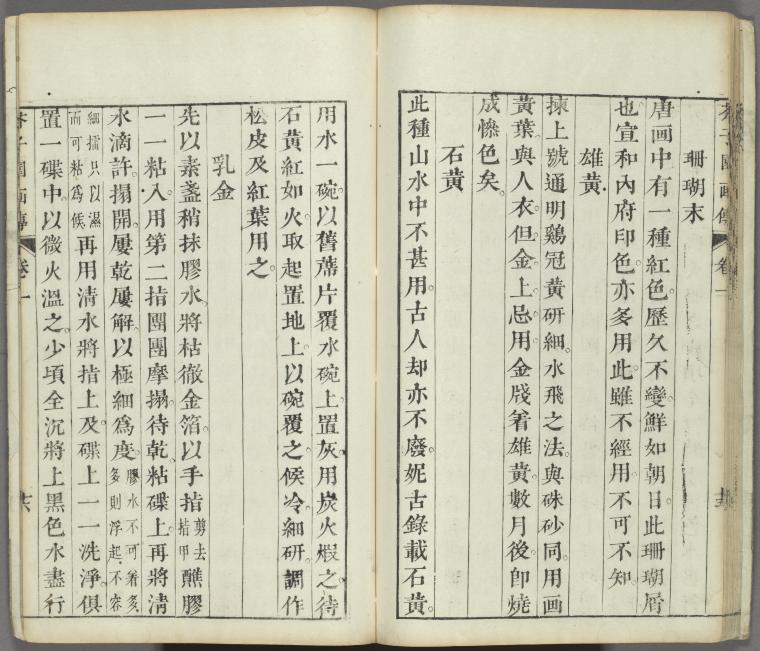 珊瑚末
唐画中有一種紅色。歷久不變。鮮如朝日。此珊瑚屑
也。宣和內府印色。亦多用此。雖不經用。不可不知。
雄黃
揀上號通明鷄冠黃研細。水飛之法。與硃砂同。用画
黃葉。與人衣。但金上忌用。金牋着雄黃。數月後。卽燒
成慘色矣。
石黃
此種山水中不甚用。古人却亦不廢。妮古錄載石黃。
用水一碗。以舊蓆片覆水碗上。置灰。用炭火煆之。待
石黃紅如火。取起置地上。以碗覆之。候冷。細研。調作
松皮及紅葉用之。
乳金
先以素盞稍抹膠水。將枯徹金箔。以手指剪去指甲蘸膠
一一粘入。用第二指團團摩搨。待乾。粘碟上。再將清
水滴許。搨開。屢乾屢解。以極細爲度。膠水不可着多。多則浮起。不容
細擂。只以濕而可粘爲候。再用清水將指上及碟上一一洗淨。俱
置一碟中。以微火溫之。少頃金沉。將上黑色水盡行
芥子園画傳
卷一